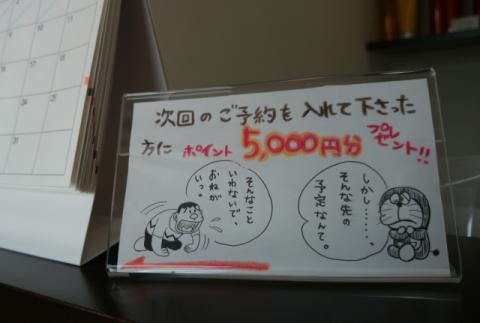 次回のご予約を入れて下さった
方に ポイント 5,000円分 プレゼント!!
しかし……、
そんな先の
予定なんて。
そんなこと
いわないで、
おねがい
いっ。